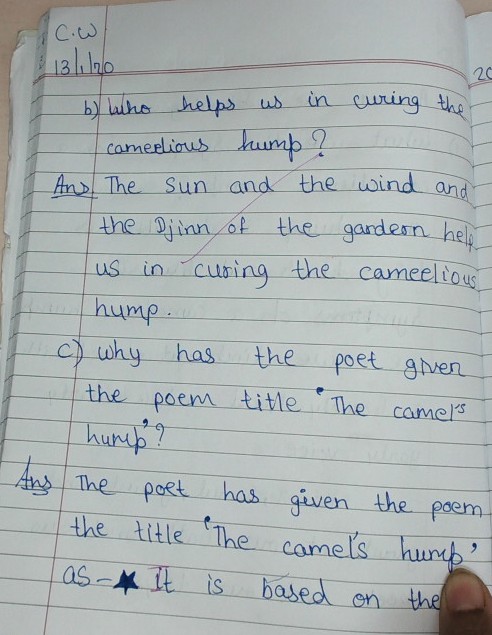 C.W
13/1/20
20
b) Who helps us in curing the
cameelious hump?
Ans The sun and the wind and
the Djinn of the gardeon help
us in curing the cameelious
hump.
c) Why has the poet given
the poem title 'The camel's
hump'?
Ans The poet has given the poem
the title 'The camel's hump'
as - ★ It is based on the